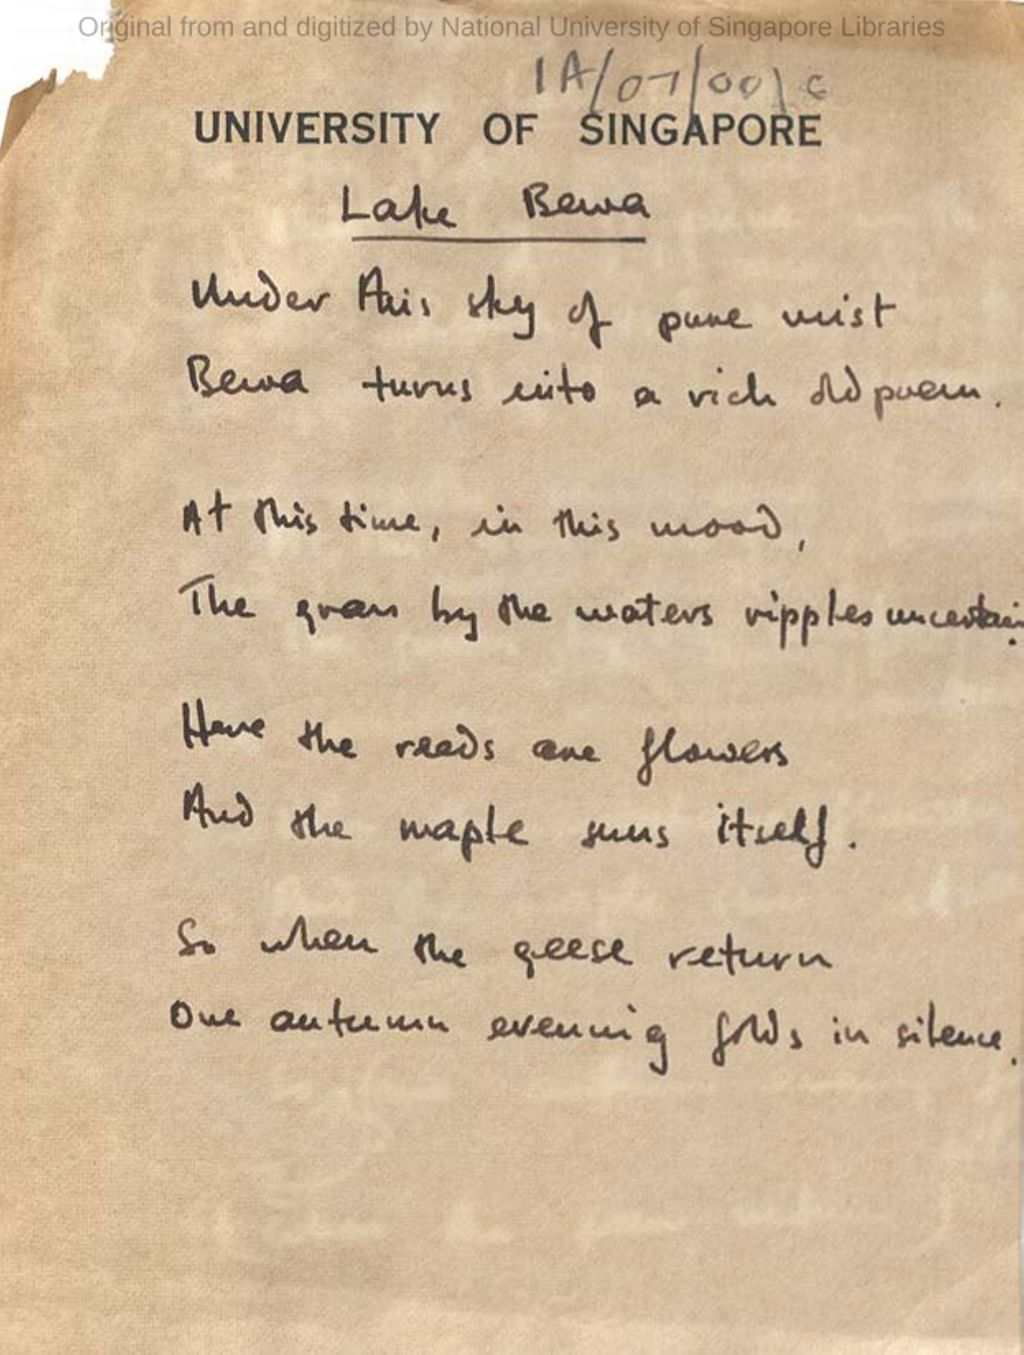 Original from and digitized by National University of Singapore Libraries
1A/07/001c
UNIVERSITY OF SINGAPORE
Lake Bewa
Under this sky of pure mist
Bewa turns into a rich old poem.
At this time, in this mood,
The grass by the waters ripples uncertain.
Here the reeds are flowers
And the maple suns itself.
So when the geese return
One autumn evening folds in silence.